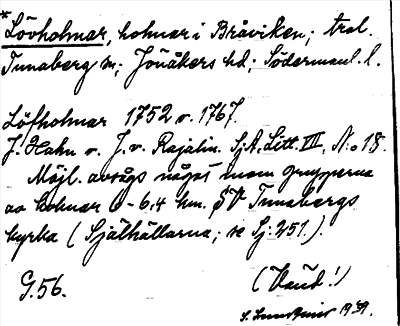 *Lövholmar, holmar i Bråviken; trol.
Tunaberg sn; Jönåkers hd; Södermanl. l.
Löfholmar 1752 o. 1767.
J. Hahn o. J. v. Rajalin. SjA. Litt. VII, N:o 18.
Möjl. avsågs något inom grupperna
av holmar 6-6,4 km. SV Tunabergs
kyrka (Själhällarna; se Sj. 251.).
G. 56. (Vand!)
1939.